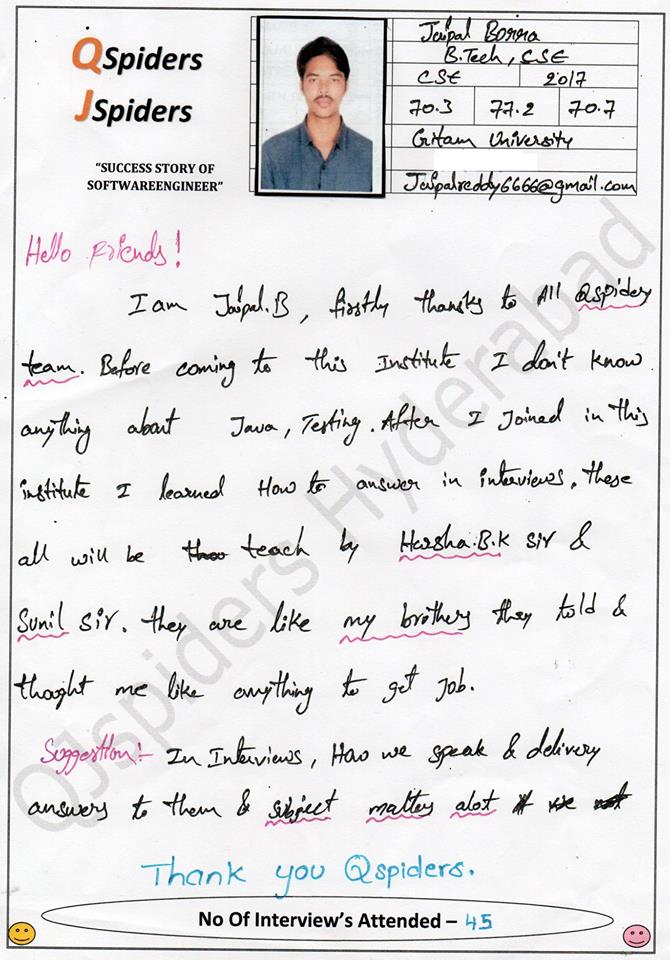 QSpiders
JSpiders
"SUCCESS STORY OF
SOFTWAREENGINEER"
Jaipal Borra
B.Tech, CSE
CSE 2017
70.3 77.2 70.7
Gitam University
Jaipalreddy6666@gmail.com
Hello Friends!
I am Jaipal.B, firstly thanks to All Qspiders
team. Before coming to this Institute I don't know
anything about Java, Testing. After I Joined in this
institute I learned How to answer in interviews, these
all will be teach by Harsha.B.K sir &
Sunil sir. they are like my brothers they told &
thought me like anything to get job.
Suggestion:- In Interviews, How we speak & delivery
answers to them & subject matters alot
Thank you Qspiders.
No Of Interview's Attended – 45
QJspiders Hyderabad